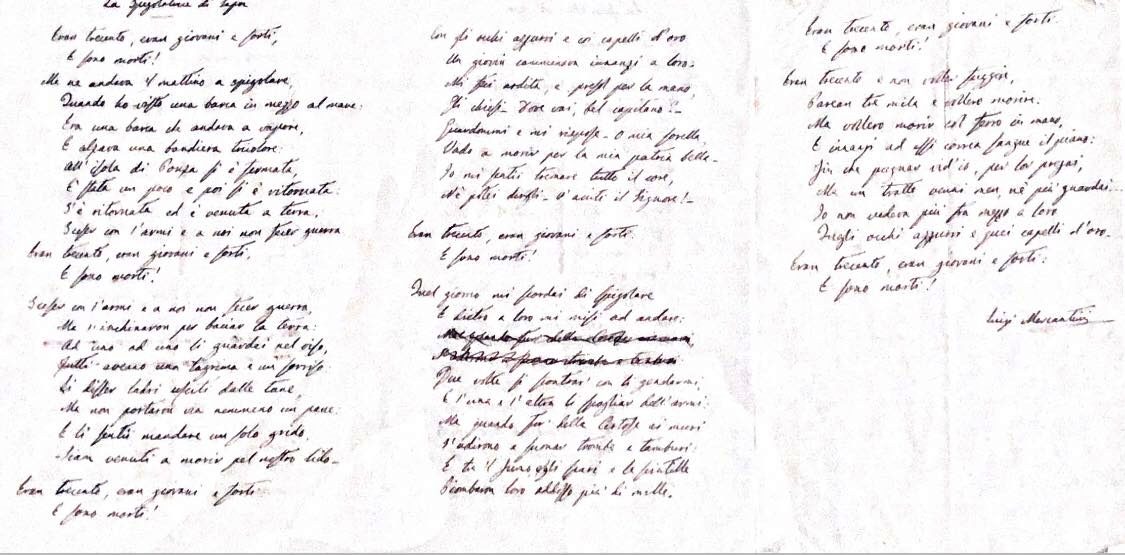 La Spigolatrice di Sapri
Eran trecento, eran giovani e forti,
E sono morti!
Me ne andava il mattino a spigolare,
Quando ho visto una barca in mezzo al mare:
Era una barca che andava a vapore,
E alzava una bandiera tricolore:
All'isola di Ponza si è fermata,
È stata un poco e poi si è ritornata:
S'è ritornata ed è venuta a terra,
Sceser con l'armi e a noi non fecer guerra
Eran trecento, eran giovani e forti,
E sono morti!
Sceser con l'armi e a noi non fecer guerra,
Ma s'inchinaron per baciar la terra:
Ad uno ad uno li guardai nel viso,
Tutti aveano una lagrima e un sorriso:
Li disser ladri usciti dalle tane,
Ma non portaron via nemmeno un pane:
E li sentii mandare un solo grido,
Siam venuti a morir pel nostro lido_
Eran trecento, eran giovani e forti
E sono morti!
Con gli occhi azzurri e coi capelli d'oro
Un giovin camminava innanzi a loro_
Mi feci ardita, e presol per la mano,
Gli chiesi_ Dove vai, bel capitano?_
Guardommi e mi rispose_ O mia sorella,
Vado a morir per la mia patria bella_
Io mi sentii tremare tutto il core,
Nè potei dirgli_ V'aiuti il Signore!_
Eran trecento, eran giovani e forti
E sono morti!
Quel giorno mi scordai di spigolare
E dietro a loro mi misi ad andare:
Due volte si scontrar con li gendarmi,
E l'una e l'altra li spogliar dell'armi:
Ma quando fur della Certosa ai muri
S'udirono a suonar trombe e tamburi:
E tra il fumo e gli spari e le scintille
Piombaron loro addosso più di mille.
Eran trecento, eran giovani e forti
E sono morti!
Eran trecento e non voller fuggire,
Parean tre mila e vollero morire:
Ma vollero morir col ferro in mano,
E innanzi ad essi correa sangue il piano:
Fin che pugnar vid'io, per lor pregai,
Ma un tratto venni men, nè più guardai...
Io non vedeva più fra mezzo a loro
Quegli occhi azzurri e quei capelli d'oro_
Eran trecento, eran giovani e forti:
E sono morti!
Luigi Mercantini